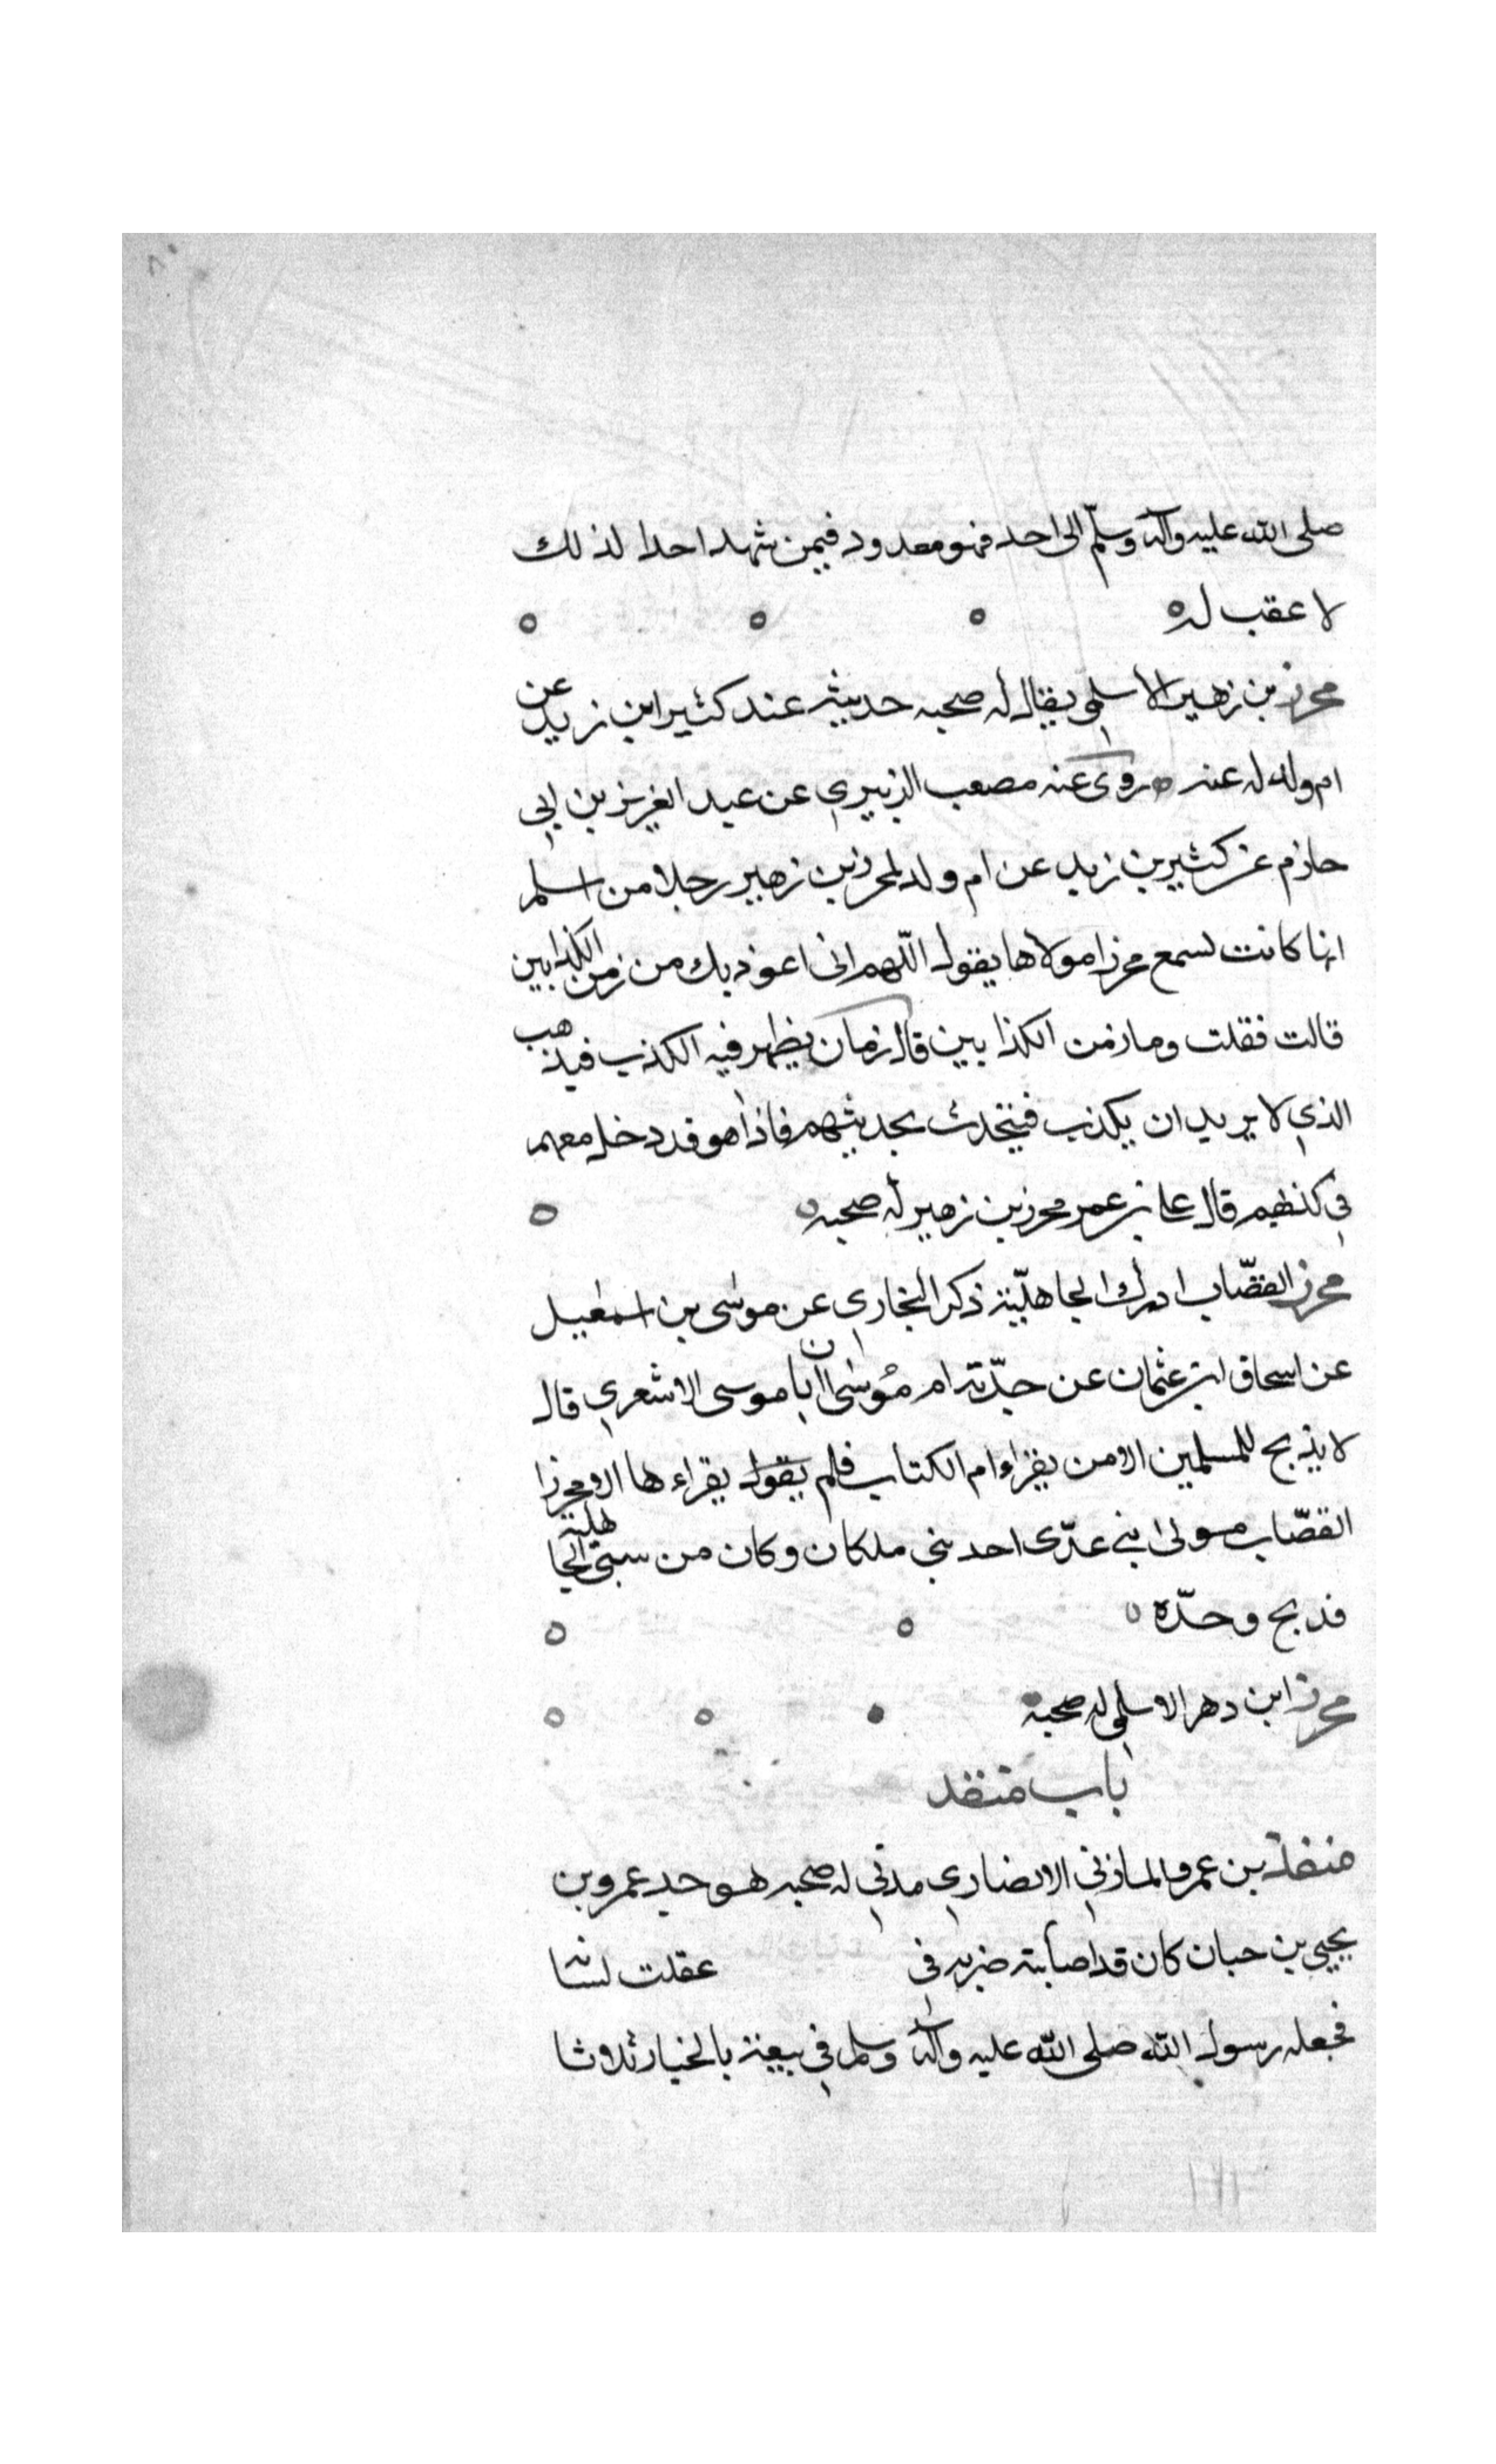 صلى الله عليه وآله وسلّم الى احد فهو معدود فيمن شهد احدا لذلك
لا عقب له
محرز بن زهير الاسلمى يقال له صحبه حديثه عند كثير ابن زيد عن
ام ولد له عنه روى عنه مصعب الزبيري عن عبد العزيز بن ابي
حازم عن كثير بن زيد عن ام ولد لمحرز بن زهير رجلا من اسلم
انها كانت تسمع محرزا مولاها يقول اللّهم انى اعوذ بك من زمن الكذابين
قالت فقلت وما زمن الكذابين قال زمان يظهر فيه الكذب فيذهب
الذي لا يريد ان يكذب فيتحدث بحديثهم فاذا هو قد دخل معهم
في كذبهم قال على بن عمر محرز بن زهير له صحبه
محرز القصّاب ادرك الجاهليّة ذكر البخارى عن موسى بن اسمعيل
عن اسحاق ابن عثمان عن جدّته ام مُوسى ان ابا موسى الاشعري قال
لا يذبح للمسلمين الا من يقراء ام الكتاب فلم يقول يقراءها الا محرزا
القصّاب مولى ابني عدّى احد بني ملكان وكان من سبي الجاهلية
فذبح وحدّه
محرز ابن دهر الاسلمى له صحبة
باب منقذ
منقذ بن عمرو المازني الانصاري مدني له صحبه هو جد عمرو بن
يحيي بن حبان كان قد اصابته ضربه فى عقلت لسانه
فجعله رسول الله صلى الله عليه وآله وسلم في بيعته بالخيار ثلاثا